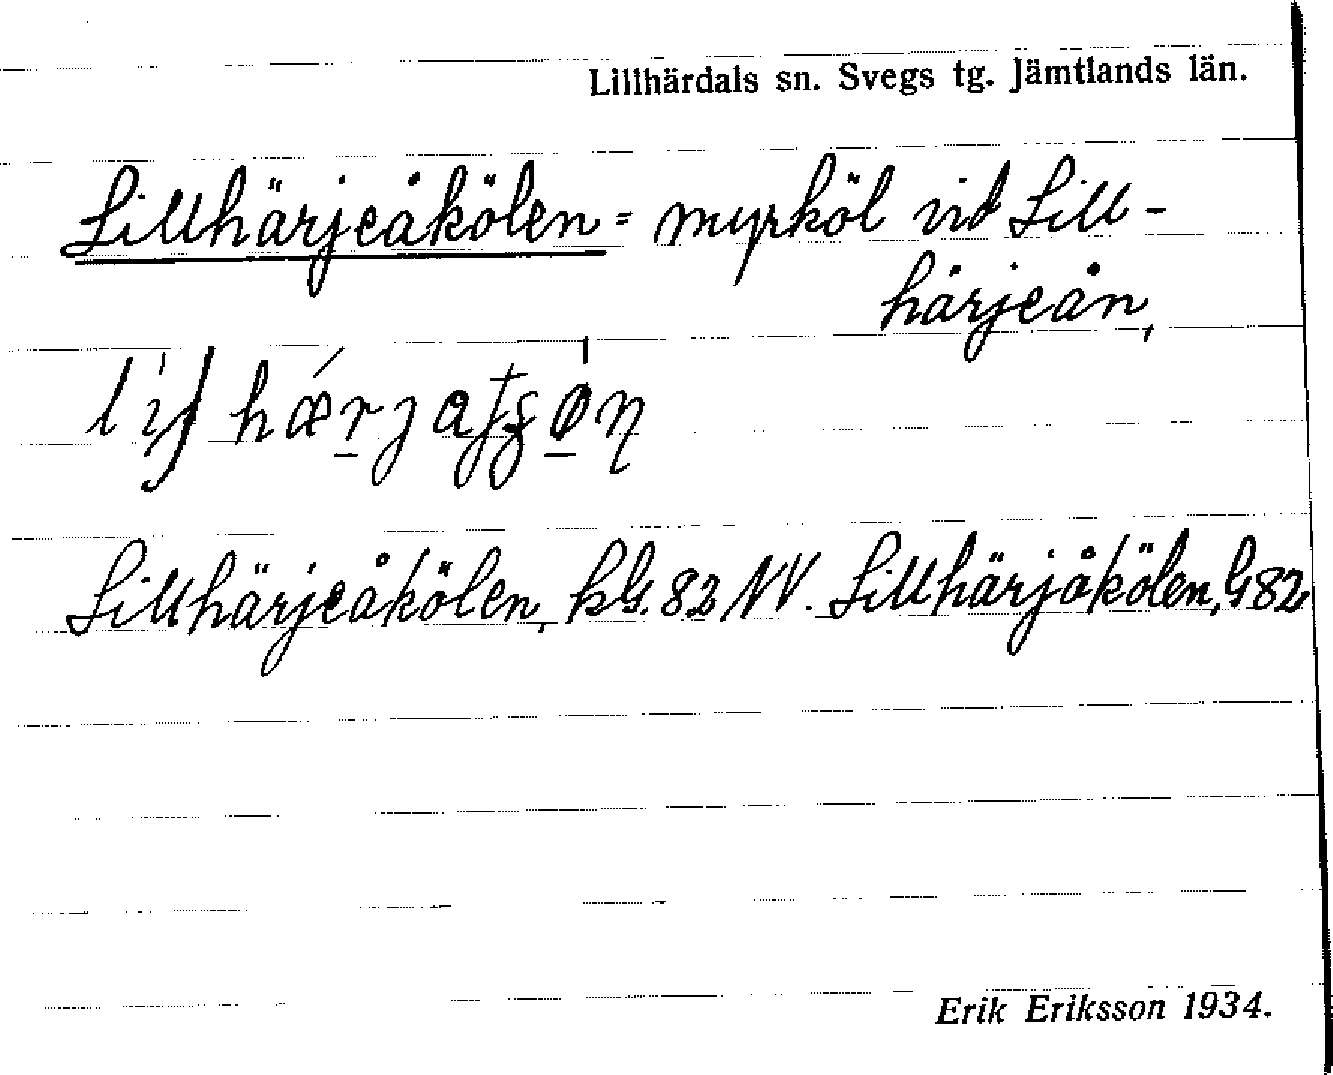 Lillhärdals sn. Svegs tg. Jämtlands län.
Lillhärjeåkölen = myrköl vid Lill-
härjeån,
Lillhärjeåkölen, kG. 82 NV. Lillhärjåkölen, G82
Erik Eriksson 1934.